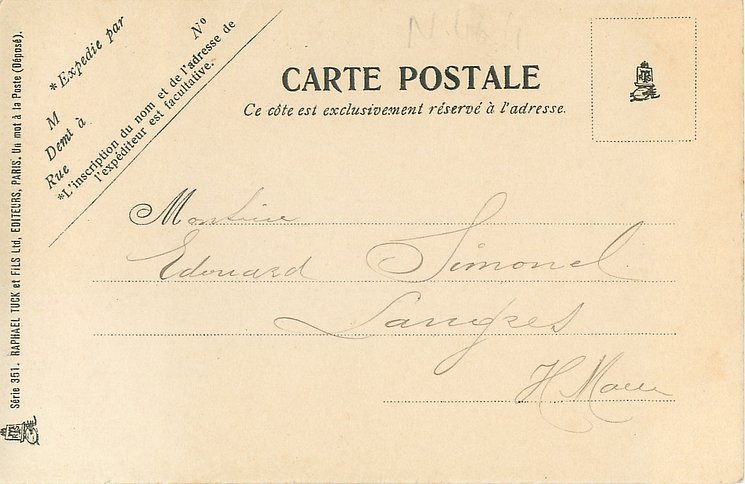 *Expedie par
M
Nº
Demt à
Rue
*L'inscription du nom et de l'adresse de
l'expéditeur est facultative.
CARTE POSTALE
Ce côte est exclusivement réservé à l'adresse.
Monsieur
Edouard Simonel
Langres
H. Marne
Série 351. RAPHAEL TUCK et FILS Ltd, EDITEURS, PARIS. Un mot à la Poste (Déposé).